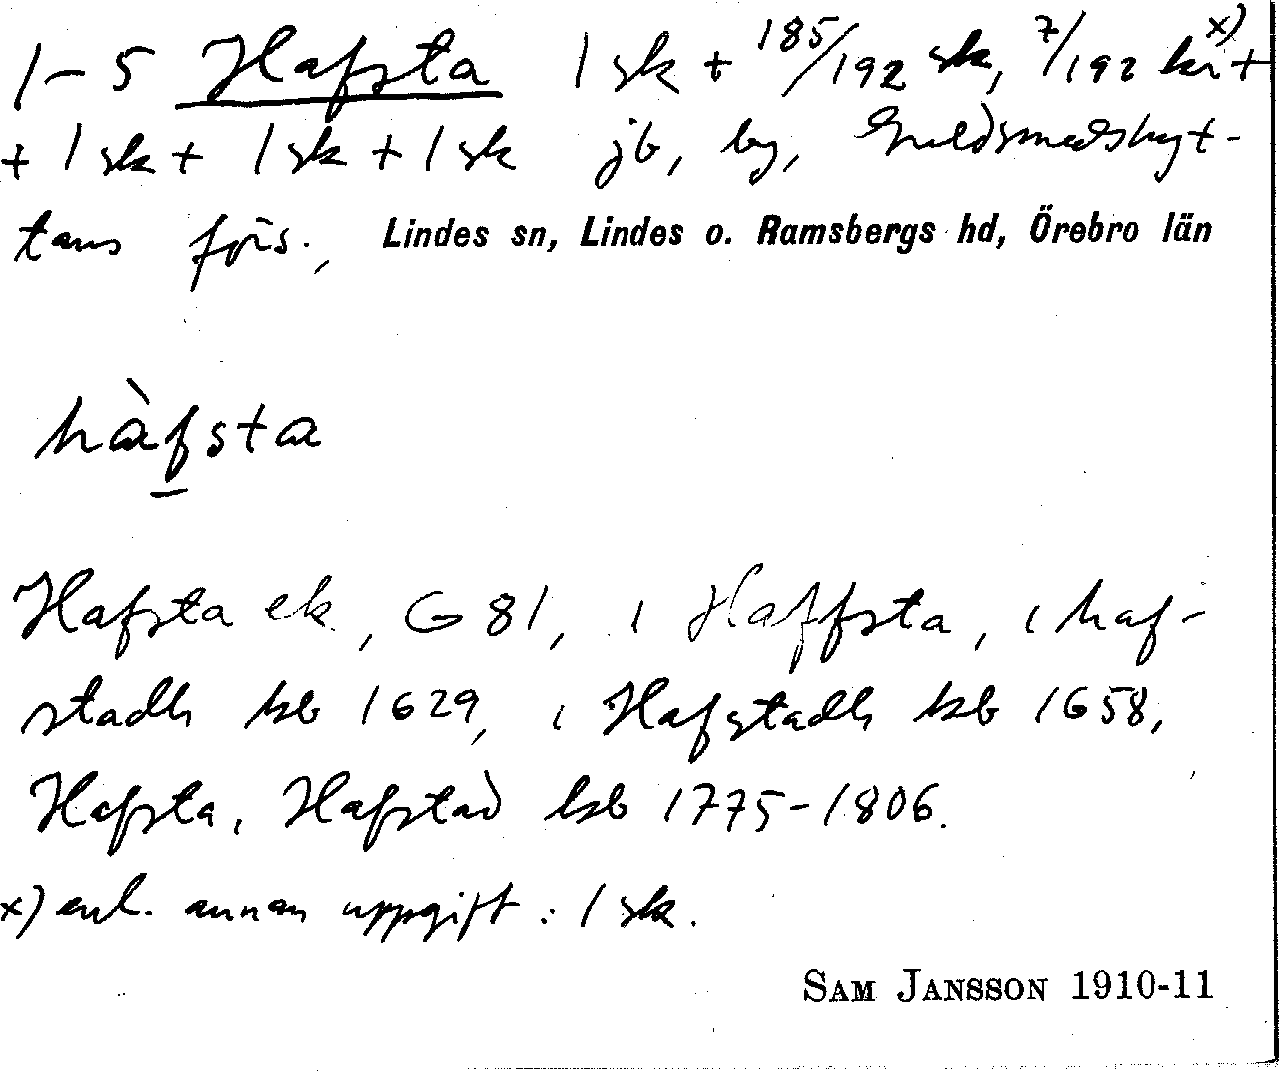 1-5 Hafsta 1 sk + 185/192 sk, 7/192 kr x) +
+ 1 sk + 1 sk + 1 sk jb, by, Guldsmedshyt-
tans förs., Lindes sn, Lindes o. Ramsbergs hd, Örebro län
hàfsta
Hafsta ek, G 81, i Haffsta, i haf-
stadh kb 1629, i Hafstadh kb 1658,
Hafsta, Hafstad kb 1775-1806.
x) enl. annan uppgift: 1 sk.
SAM JANSSON 1910-11